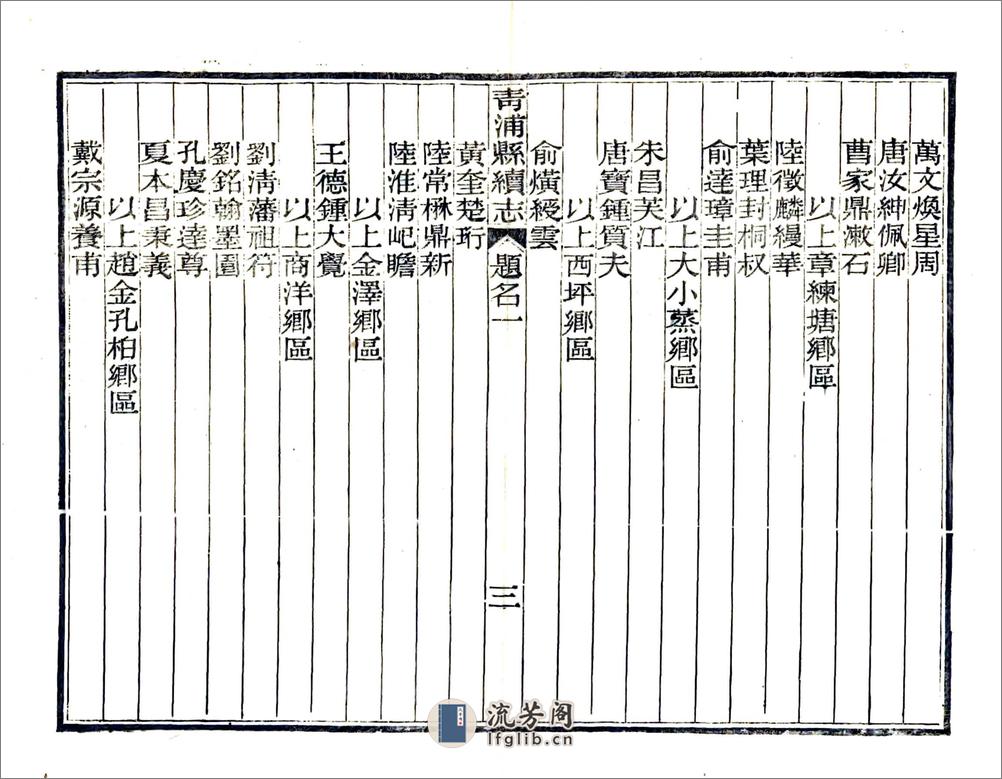 萬文煥星周
唐汝紳佩卿
曹家鼎漱石
以上章練塘鄉區
陸徵麟縵華
葉理封桐叔
俞達璋圭甫
以上大小蒸鄉區
朱昌芙江
唐寶鍾質夫
以上西坪鄉區
俞爌綬雲
青浦縣續志
題名一
三
黃奎楚珩
陸常楙鼎新
陸淮清屺瞻
以上金澤鄉區
王德鍾大覺
以上商洋鄉區
劉清藩祖符
劉銘翰墨園
孔慶珍達尊
夏本昌秉義
以上趙金孔柏鄉區
戴宗源養甫
流芳阁
lfglib.cn